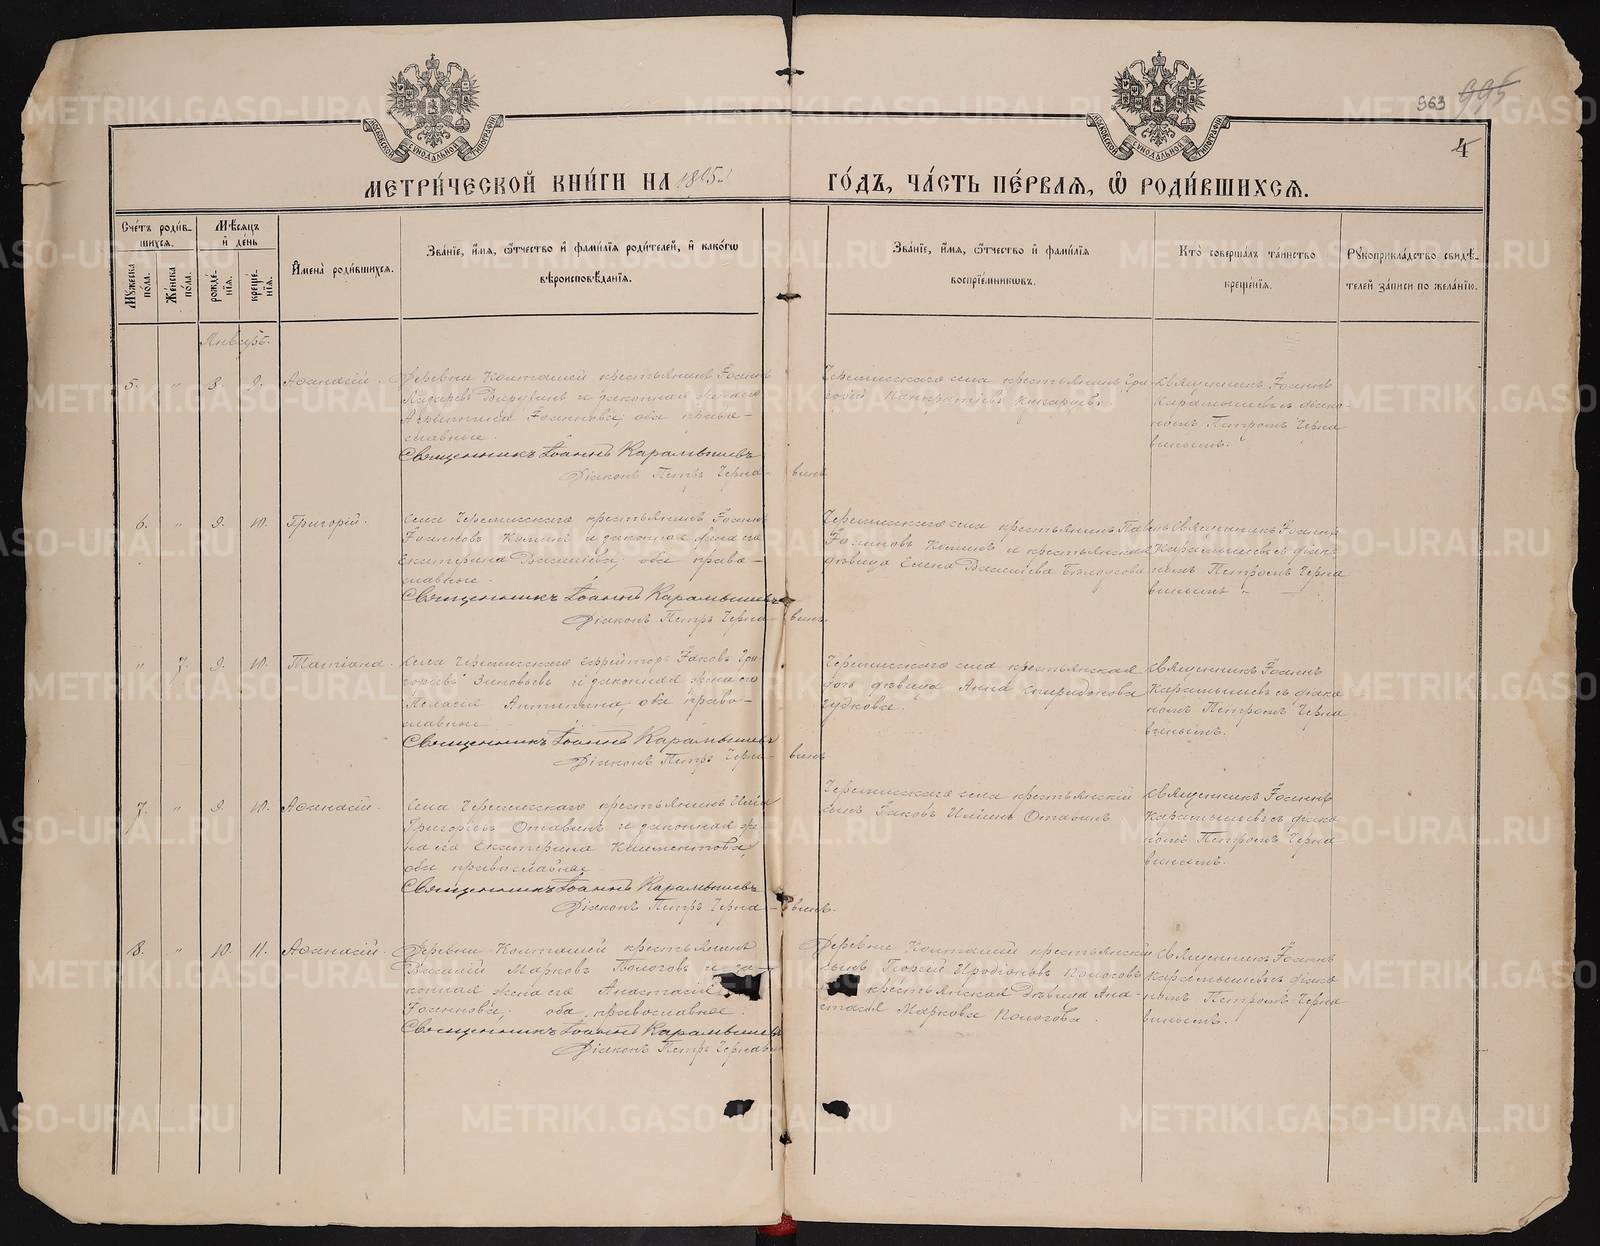 963 995
4
МОСКОВСКОЙ СѴНОДАЛЬНОЙ ТИПОГРАФІИ
МОСКОВСКОЙ СѴНОДАЛЬНОЙ ТИПОГРАФІИ
МЕТРИ́ЧЕСКОЙ КНИ́ГИ НА 1895 ГО́ДЪ, ЧА́СТЬ ПЕ́РВАѦ, Ѡ҆ РОДИ́ВШИХСѦ.
Сче́тъ роди́в-
шихсѧ.
Мѣ́сѧцъ
и҆ де́нь
Мꙋ́жеска по́ла.
Же́нска по́ла.
рожде́-
нїѧ.
креще́-
нїѧ.
И҆мена̀ роди́вшихсѧ.
Зва́нїе, и҆́мѧ, ѻ҆́тчество и҆ фами́лїѧ роди́телей, и҆ како́гѡ
вѣроисповѣ́данїѧ.
Зва́нїе, и҆́мѧ, ѻ҆́тчество и҆ фами́лїѧ
воспрїе́мникѡвъ.
Кто̀ соверша́лъ та́инство
креще́нїѧ.
Рꙋкоприкла́дство свидѣ́-
телей за́писи по жела́нїю.
Январь.
5. " 8. 9. Аѳанасій. Деревни Колташей крестьянинъ Іоаннъ
Лазаревъ и законная жена его
Іоаннова, оба право-
славные.
Священникъ Іоаннъ Карамышевъ
Діаконъ Петръ Чернавинъ
Черемисскаго села крестьянинъ Гри-
горій
Священникъ Іоаннъ
Карамышевъ съ діако-
номъ Петромъ Черна
винымъ.
6. " 9. 10. Григорій. Села Черемисскаго крестьянинъ Іоаннъ
Іоанновъ и законная жена его
Екатерина Василіева, оба право-
славные.
Священникъ Іоаннъ Карамышевъ
Діаконъ Петръ Чернавинъ.
Черемисскаго села крестьянинъ Павелъ
Іоанновъ и крестьянская
дѣвица Елена Василіева Бѣлоусова
Священникъ Іоаннъ
Карамышевъ съ діако
номъ Петромъ Черна
винымъ.
" 7. 9. 10. Татіана. Села Черемисскаго ефрейторъ Іаковъ Гри-
горьевъ Зиновьевъ и законная жена его
Пелагія Антипина, оба право-
славные
Священникъ Іоаннъ Карамышевъ
Діаконъ Петръ Чернавинъ
Черемисскаго села крестьянская
дочь дѣвица Анна Спиридонова
Гудкова.
Священникъ Іоаннъ
Карамышевъ съ діако
номъ Петромъ Черна
винымъ.
7. " 9. 10. Аѳанасій. Села Черемисскаго крестьянинъ Илія
Григорьевъ Отавинъ и законная же
на его Екатерина Климентова,
оба православные
Священникъ Іоаннъ Карамышевъ
Діаконъ Петръ Чернавинъ.
Черемисскаго села крестьянскій
сынъ Іаковъ Иліинъ Отавинъ
Священникъ Іоаннъ
Карамышевъ съ діако
номъ Петромъ Черна
винымъ.
8. " 10. 11. Аѳанасій. Деревни Колташей крестьянинъ
Василій Марковъ Пологовъ и за-
конная жена его Анастасія
Іоаннова, оба православные.
Священникъ Іоаннъ Карамышевъ
Діаконъ Петръ Чернавинъ
Деревни Колташей крестьянскій
сынъ Георгій Иродіоновъ Пологовъ
крестьянская дѣвица Ана-
стасія Маркова Пологова.
Священникъ Іоаннъ
Карамышевъ съ діако
номъ Петромъ Черна
винымъ.
METRIKI.GASO-URAL.RU